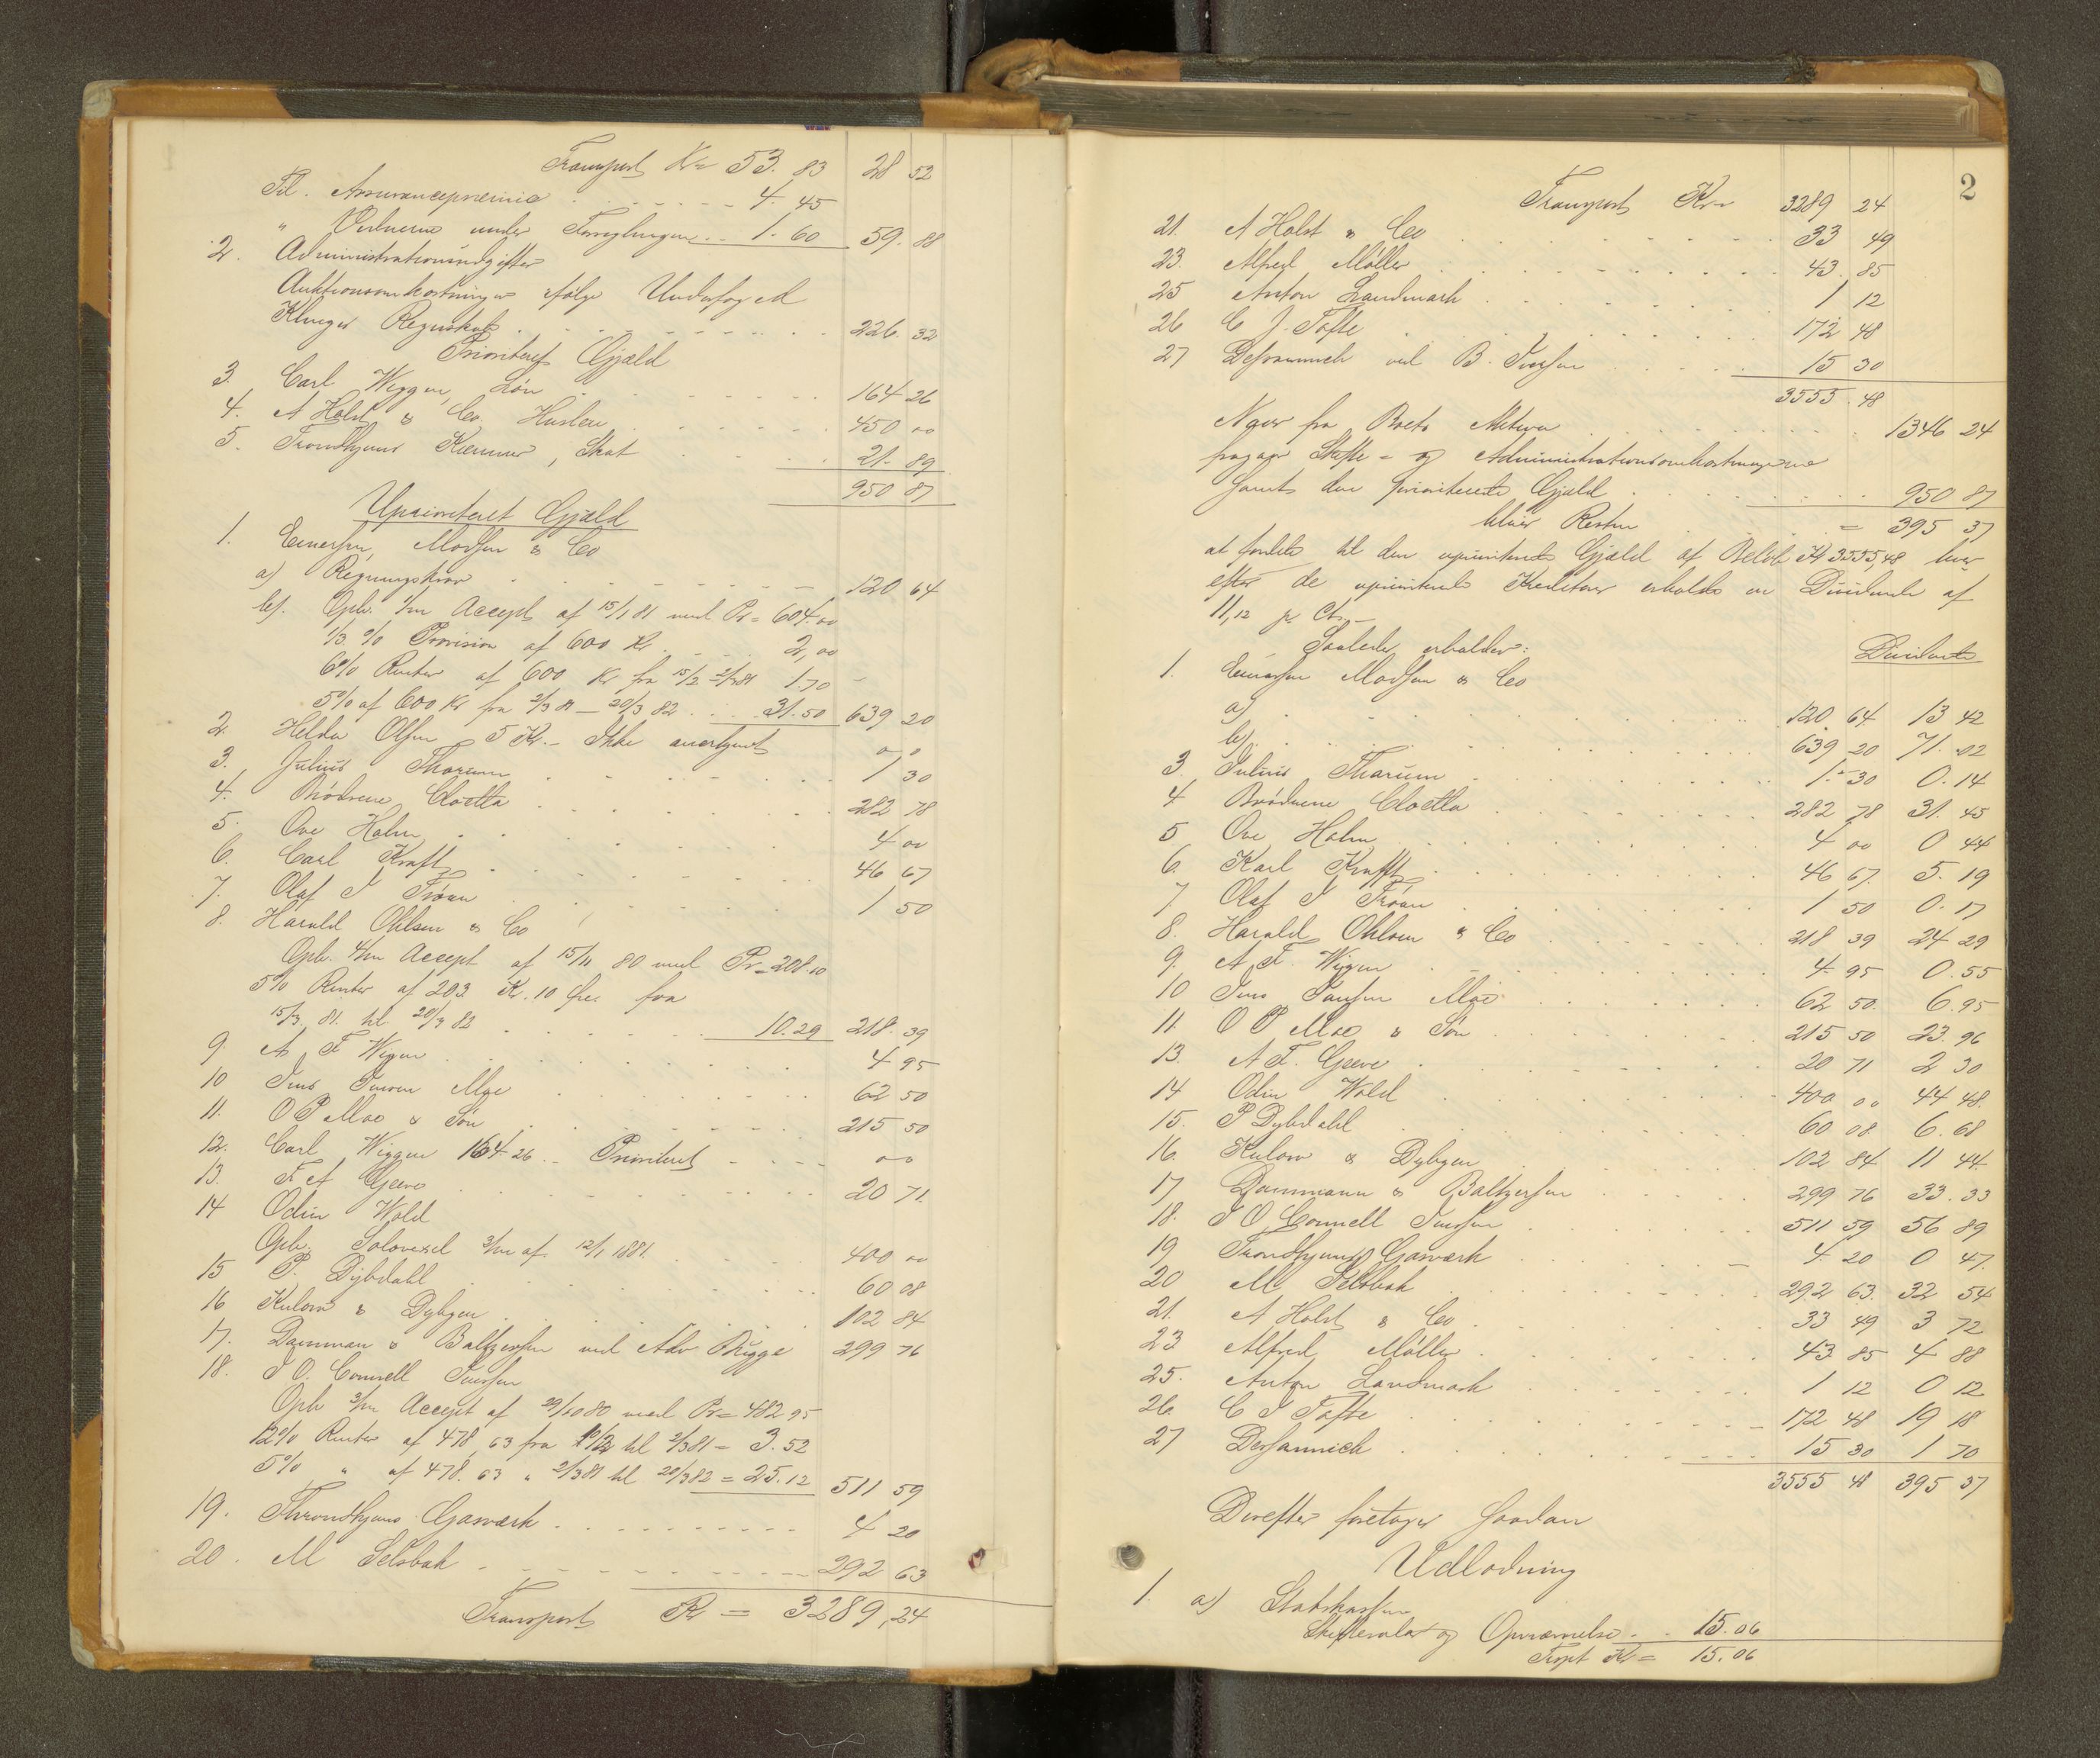 Transport Kr= 53. 83 28 52
Til. Assurancepræmie . . . . . . 4. 45
" Ventuerne under Forseglingen . . 1. 60 59. 88
2. Administrationsudgifter
Auktionsomkostninger ifølge Underfoged
Klinges Regnskab . . . . . 226. 32
Prioriteret Gjæld
3. Carl Wiggen, Løn . . . . . 164 26
4. A Holst & Co, Husleie . . . . . 450 00
5. Trondhjems Kæmner, Skat . . . . 21. 89
950 87
Uprioriteret Gjæld
1. Einersen, Madsen & Co
a) Regningskrav . . . . . 120 64
b). Opb. Accept af 15/1 81 med Pr= 604.00
1/3 % Provision af 600 Kr . . . 2,00
6% Renter af 600 Kr fra 15/2 - 2/3 81 1.70
5% af 600 Kr fra 2/3 81 – 20/3 82 . . 31.50 639 20
2. Helda Olsen 5 Kr. - Ikke anerkjendt " "
3. Julius Thorum . . . . . 1 30
4. Brødrene Cloetta . . . . . 282 78
5. Ove Holm . . . . . 4 00
6. Carl Krafft . . . . . 46 67
7. Olaf I Trøan . . . . . 1 50
8. Harald Ohlsen & Co
Opb. 4/m Accept af 15/11 80 med Pr= 208.10
5% Renter af 203 Kr. 10 Øre fra
15/3. 81. til 20/3 82 . . . . . 10.29 218. 39
9. A F Wigen . . . . . 4 95
10 Jens Jensen Moe . . . . . 62 50
11. O P Moe & Søn . . . . . 215 50
12. Carl Wiggen 164. 26 - Prioriteret . . . . " "
13. F A Greve . . . . . 20 71.
14 Odin Wold
Opb. Solavexel 3/m af. 12/1 1881. . . . 400 00
15 P. Dybdahl . . . . . 60 08
16 Kulow & Dybgen . . . . . 102 84
17. Damman & Baltzersen ved Adv Brügge 299 76
18. I O. Connell Iversen
Opb 3/m Accept af 29/10 80 med Pr= 482 95
12% Renter af 478, 63 fra til 2/3 81 = 3. 52
5% " af 478. 63 " 2/3 81 til 20/3 82 = 25.12 511 59
19. Throndhjems Gasværk . . . . . 4 20
20. M Selsbak . . . . . 292 63
Transport Kr = 3289,24
2
Transport Kr= 3289 24
21. A Holst & Co . . . . . 33 49
23. Alfred Møller . . . . . 43. 85
25 Anton Landmark . . . . . 1 12
26 C J. Tofte . . . . . 172 48
27 Dessaunich ved B. Iversen . . . . . 15 30
3555. 48
Naar fra Boets Aktiva . . . . . 1346 24
fragaar Skifte- og Administrationsomkostningerne
samt den prioriterede Gjæld . . . . . 950 87
bliver Resten . . . . = 395 37
at fordele til den uprioriterede Gjæld af Beløb Kr 3555,48 hvor
efter de uprioriterede Kreditorer erholde en Dividende af
11,12 pr Ct. –
Saaledes erholder: Dividende
1. Einersen Madsen & Co
a) . . . . . 120. 64 13 42
b) . . . . . 639 20 71. 02
3. Julius Tharum . . . . . 1. 30 0. 14
4 Brødrene Cloetta . . . . . 282 78 31. 45
5 Ove Holm . . . . . 4 00 0 44
6. Karl Krafft . . . . . 46 67. 5. 19
7. Olaf I Trøan . . . . . 1 50 0. 17
8. Harald Ohlsen & Co . . . . . 218 39 24 29
9. A F. Wigen . . . . . 4. 95 0. 55
10 Jens Jensen Moe . . . . . 62 50. 6. 95
11. O P Moe & Søn . . . . . 215 50 23. 96
13. A F. Greve . . . . . 20 71 2 30
14 Odin Wold . . . . . 400 00 44 48.
15. P Dybdahl . . . . . 60 08 6. 68
16. Kulow & Dybgen . . . . . 102 84 11 44
17 Dammann & Baltzersen . . . . . 299 76 33. 33
18. I O. Connell Iversen . . . . . 511 59 56 89
19 Trondhjems Gasværk . . . . . 4. 20 0 47.
20 M Selsbak . . . . . 292 63. 32 54
21. A Holst & Co . . . . . 33 49 3 72
23 Alfred Møller . . . . . 43 85 4 88
25. Anton Landmark . . . . . 1 12 0 12
26. C J Tofte . . . . . 172 48 19 18
27 Dessaunich . . . . . 15 30 1 70
3555 48 395 37
Derefter foretages saadan
Udlodning
1. a) Statskassen
Skiftesalær og Opnævnelse . . 15. 06
Trspt Kr = 15. 06